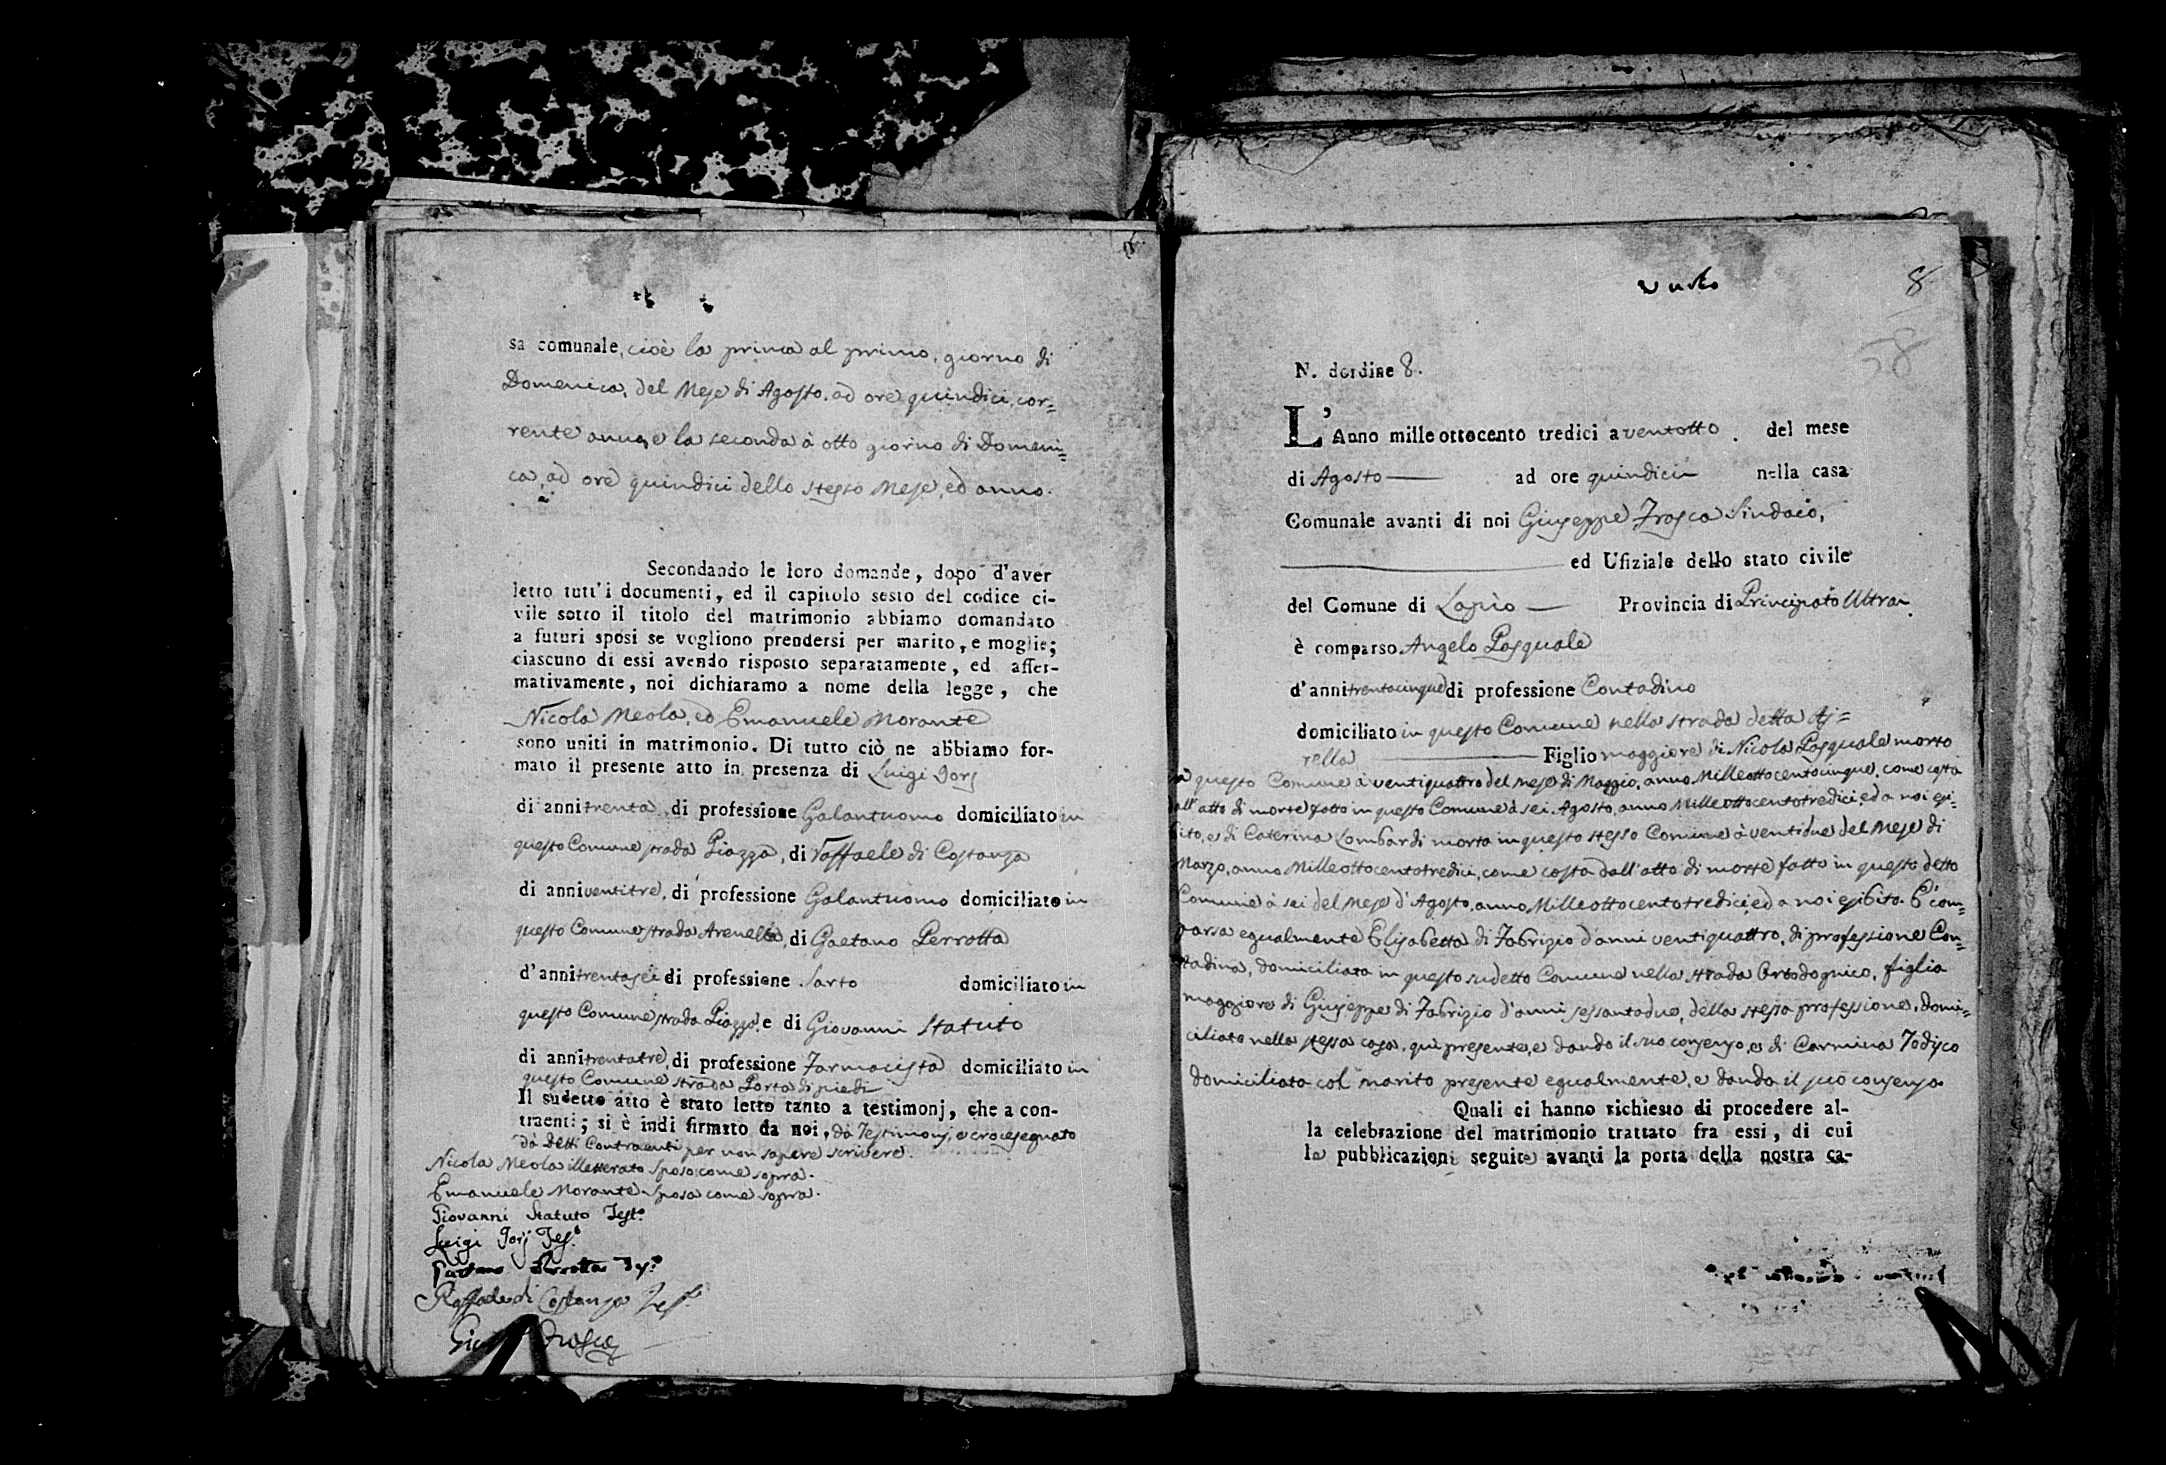 sa comunale, cioè la prima al primo, giorno di
Domenica, del Mese di Agosto, ad ore quindici, cor=
rente anno, e la seconda à otto giorno di Domeni=
ca, ad ore quindici dello stesso Mese, ed anno.
Secondando le loro domande, dopo d'aver
letto tutt'i documenti, ed il capitolo sesto del codice ci-
vile sotto il titolo del matrimonio abbiamo domandato
a futuri sposi se vogliono prendersi per marito, e moglie;
ciascuno di essi avendo risposto separatamente, ed affer-
mativamente, noi dichiaramo a nome della legge, che
Nicola Meola, ed Emanuele Morante
sono uniti in matrimonio. Di tutto ciò ne abbiamo for-
mato il presente atto in presenza di Luigi Jorj
di anni trenta, di professione Galantuomo domiciliato in
questo Comune strada Piazza, di Raffaele di Costanza
di anni ventitre, di professione Galantuomo domiciliato in
questo Comune strada Arenella, di Gaetano Perrotta
d'anni trentasei di professione Sarto domiciliato in
questo Comune strada Piazza, e di Giovanni Statuto
di anni trentatre, di professione Farmacista domiciliato in
questo Comune strada Porta di piedi
Il sudetto atto è stato letto tanto a testimonj, che a con-
traenti; si è indi firmato da noi, dà Testimonj, e crocesegnato
dà detti Contraenti per non sapere scrivere.
Nicola Meola illetterato sposo come sopra.
Emanuele Morante sposa come sopra.
Giovanni Statuto Test.º
Luigi Jorj Tes.º
Gaetano Perrotta
Raffaele di Costanza Tes.º
Frosca
8
58
N. dordine 8.
L'Anno mille ottocento tredici a ventotto del mese
di Agosto ad ore quindici nella casa
Comunale avanti di noi Giuseppe Frosca Sindaco,
ed Ufiziale dello stato civile
del Comune di Lapio Provincia di Principato Ultra
è comparso Angelo Pasquale
d'anni trentacinque di professione Contadino
domiciliato in questo Comune nella strada detta Aj=
rella Figlio maggiore di Nicola Pasquale morto
questo Comune à ventiquattro del mese di Maggio, anno Milleottocentocinque, come costa
all'atto di morte fatto in questo Comune à sei Agosto, anno Milleottocentotredici, ed a noi esi=
bito, e di Caterina Lombardi morta in questo stesso Comune à ventidue del Mese di
Marzo, anno Milleottocentotredici, come costa dall'atto di morte fatto in questo detto
Comune à sei del Mese d'Agosto, anno Milleottocentotredici, ed a noi esibito. E' com=
parsa egualmente Elisabetta di Fabrizio d'anni ventiquattro, di professione Con=
tadina, domiciliata in questo sudetto Comune nella strada Ortodognico, figlia
maggiore di Giuseppe di Fabrizio d'anni sessantadue, della stessa professione, domi=
ciliato nella stessa casa, quì presente, e dando il suo consenso, e di Carmina Todisco
domiciliata col marito presente egualmente, e dando il suo consenso.
Quali ci hanno richiesto di procedere al-
la celebrazione del matrimonio trattato fra essi, di cui
le pubblicazioni seguite avanti la porta della nostra ca-